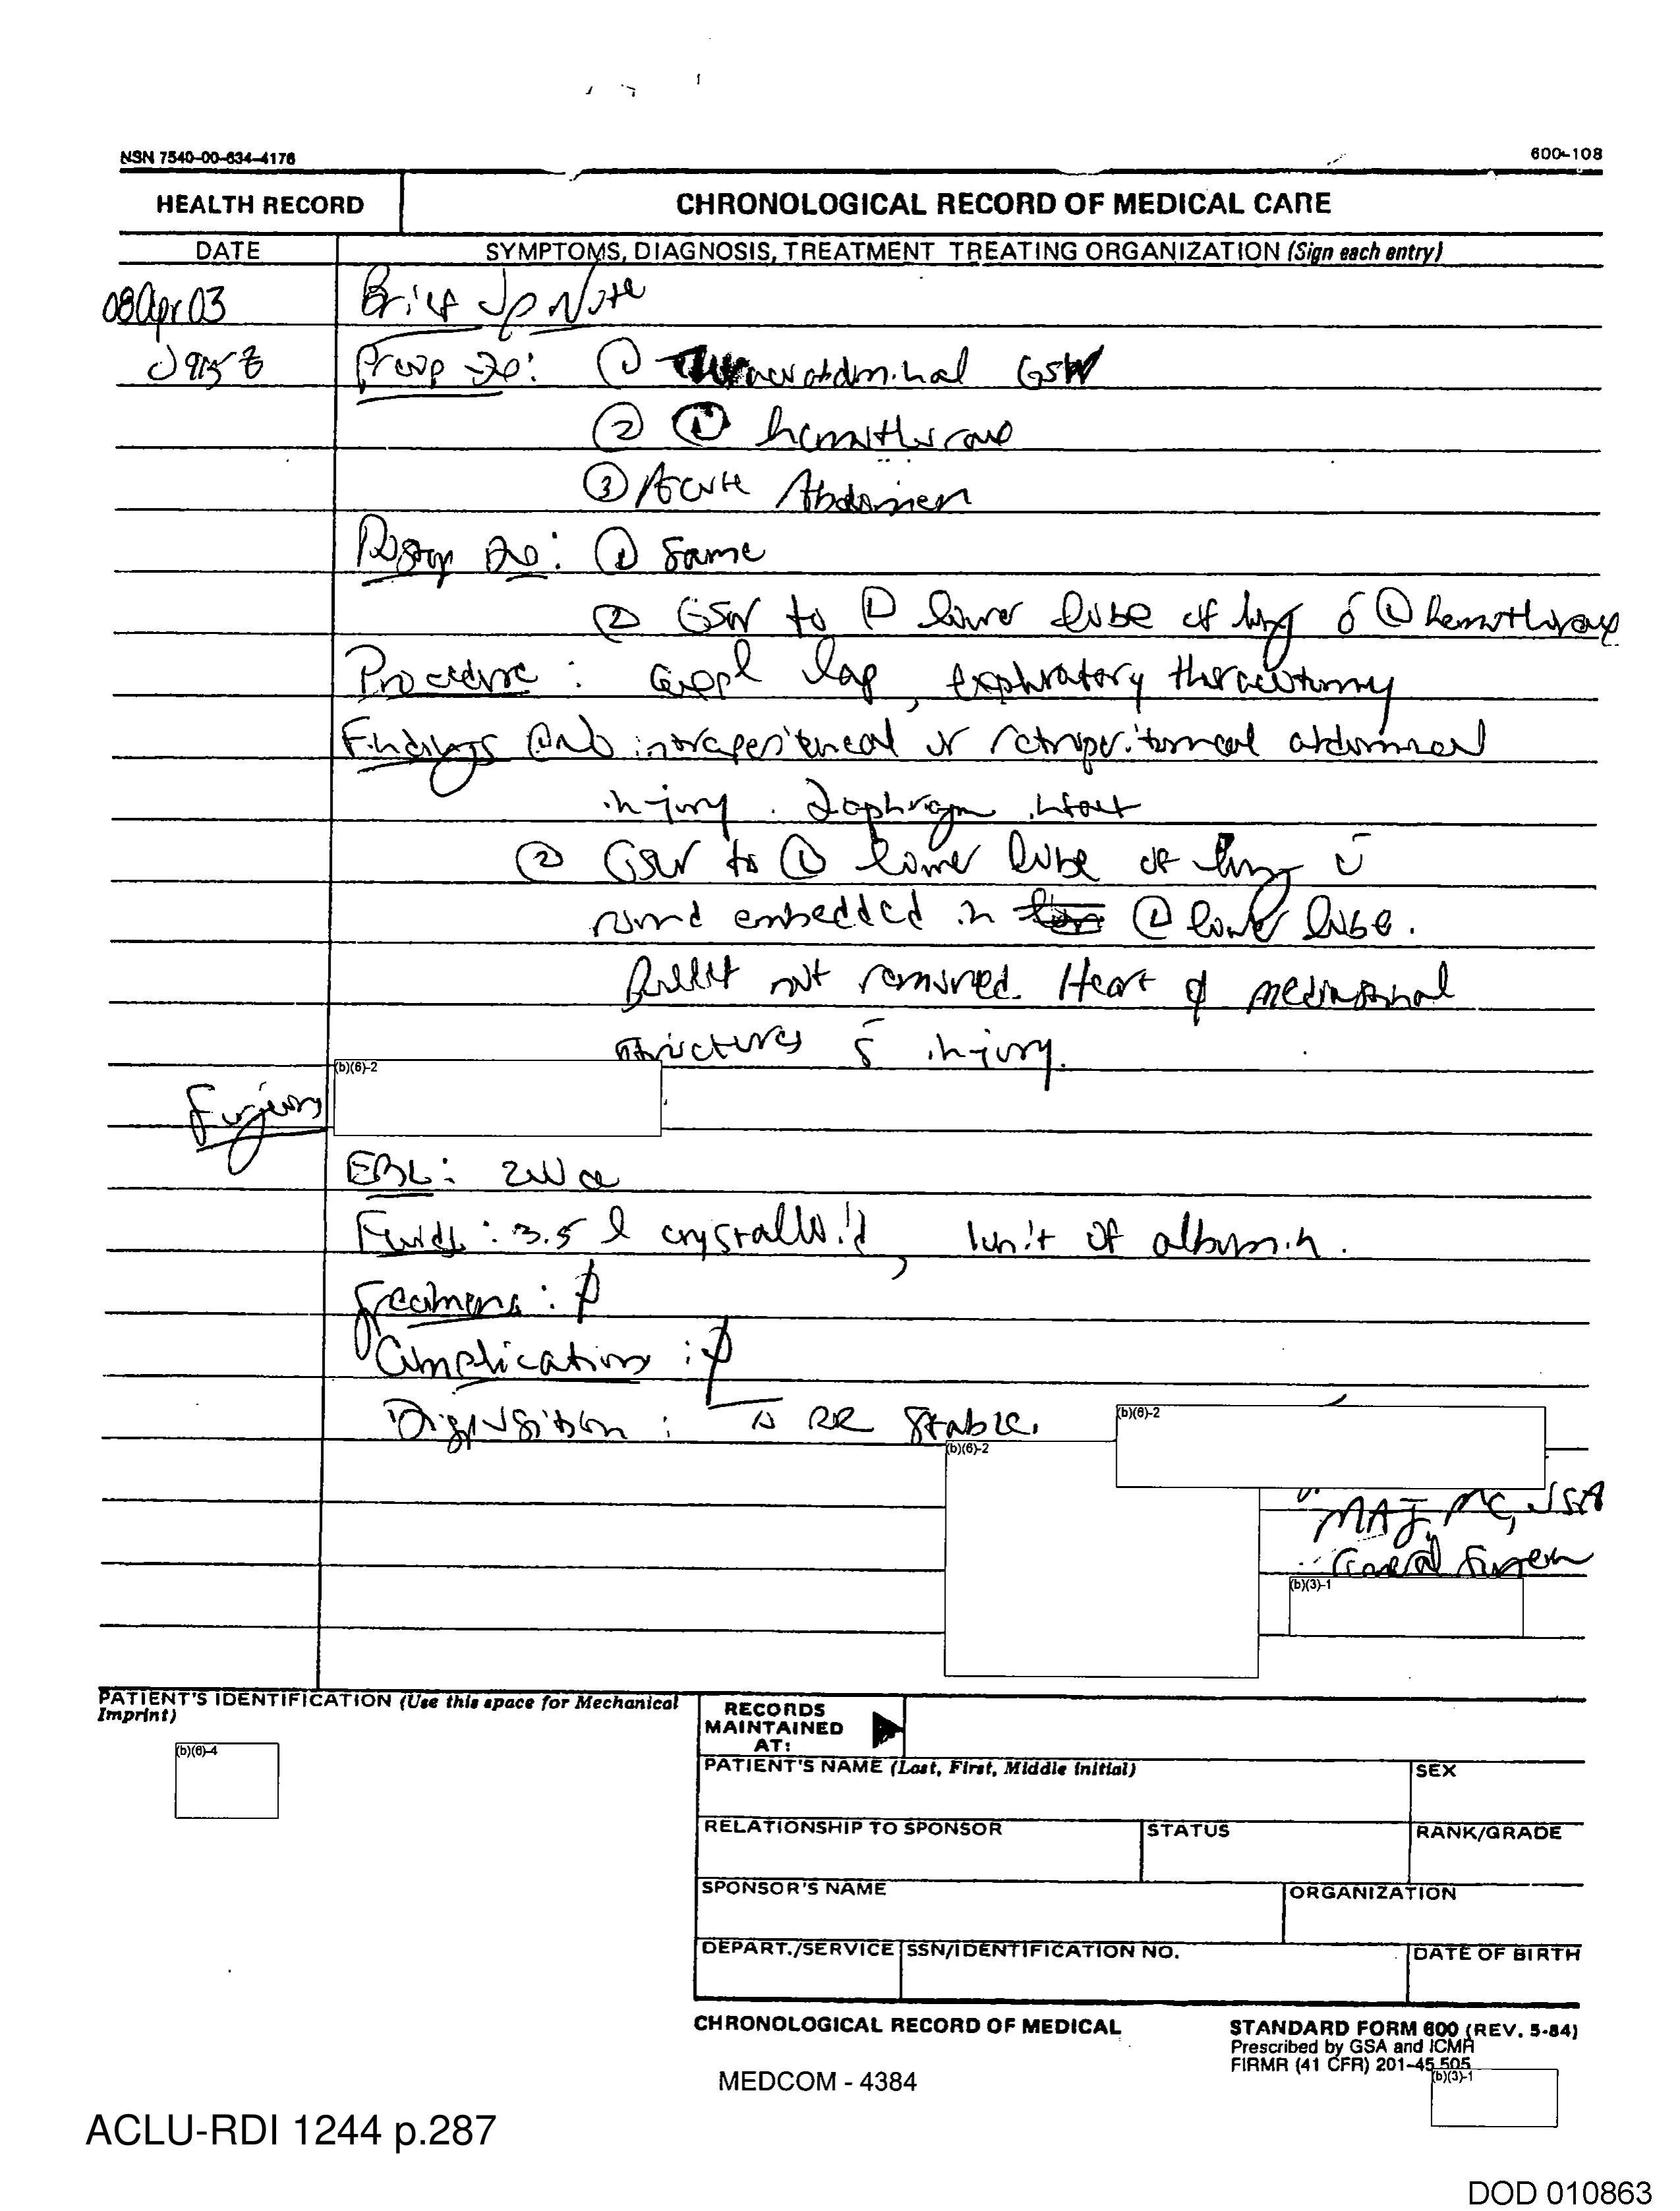 NSN 7540-00-634-4176
600-108
HEALTH RECORD
CHRONOLOGICAL RECORD OF MEDICAL CARE
DATE
SYMPTOMS, DIAGNOSIS, TREATMENT TREATING ORGANIZATION (Sign each entry)
08Apr03 Brief Op Note
Preop Dx: ① Thoracoabdominal GSW
② Ⓛ hemothorax
③ Acute Abdomen
Postop Dx: ① Same
② GSW to Ⓛ lower lobe of lung c̄ Ⓛ hemothorax
Procedure: Expl lap, exploratory thoracotomy
Findings ① No intraperitoneal or retroperitoneal abdominal
injury. Diaphragm intact
② GSW to Ⓛ lower lobe of lung c̄
round embedded in Ⓛ lower lobe.
Bullet not removed. Heart & mediastinal
structures s̄ injury.
(b)(6)-2
Surgeons
EBL: 200 cc
Fluids: 3.5 l crystalloid, 1 unit of albumin.
Specimens: ∅
Complications: ∅
Disposition: To RR stable.
(b)(6)-2
(b)(6)-2
MAJ, MC, USA
General Surgeon
(b)(3)-1
PATIENT'S IDENTIFICATION (Use this space for Mechanical
Imprint)
(b)(6)-4
RECORDS
MAINTAINED
AT:
PATIENT'S NAME (Last, First, Middle initial)
SEX
RELATIONSHIP TO SPONSOR
STATUS
RANK/GRADE
SPONSOR'S NAME
ORGANIZATION
DEPART./SERVICE
SSN/IDENTIFICATION NO.
DATE OF BIRTH
CHRONOLOGICAL RECORD OF MEDICAL
STANDARD FORM 600 (REV. 5-84)
Prescribed by GSA and ICMR
FIRMR (41 CFR) 201-45.505
(b)(3)-1
MEDCOM - 4384
ACLU-RDI 1244 p.287
DOD 010863